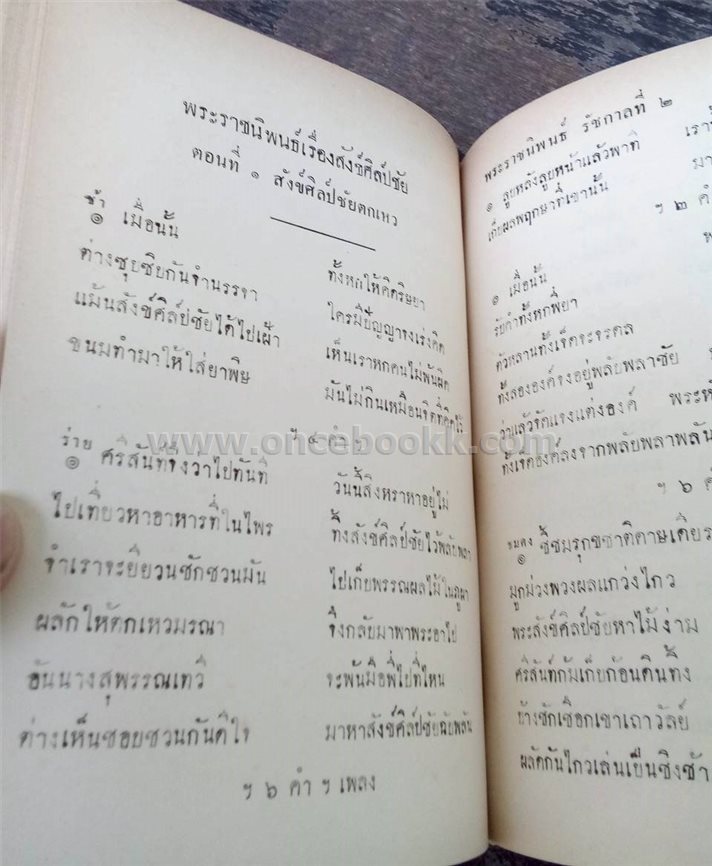 พระราชนิพนธ์เรื่องสังข์ศิลป์ชัย
ตอนที่ ๑ สังข์ศิลป์ชัยตกเหว
ช้า
๏ เมื่อนั้น ทั้งหกให้คิดริษยา
ต่างซุบซิบกันจำนรรจา ใครมีปัญญาจงเร่งคิด
แม้นสังข์ศิลป์ชัยได้ไปเฝ้า เห็นเราหกคนไม่พ้นผิด
ขนมทำมาให้ใส่ยาพิษ มันไม่กินเหมือนจิตที่คิดไว้
ฯ ๔ คำ ฯ
ร่าย
๏ ศรีสันท์จึงว่าไปทันที วันนี้สิงหราหาอยู่ไม่
ไปเที่ยวหาอาหารที่ในไพร ทิ้งสังข์ศิลป์ชัยไว้พลับพลา
จำเราจะยียวนชักชวนมัน ไปเก็บพรรณผลไม้ในภูผา
ผลักให้ตกเหวมรณา จึงกลับมาพาพระอาไป
อันนางสุพรรณเทวี จะพ้นมือพี่ไปที่ไหน
ต่างเห็นชอบชวนกันดีใจ มาหาสังข์ศิลป์ชัยฉับพลัน
ฯ ๖ คำ ฯ เพลง
พระราชนิพนธ์ รัชกาลที่ ๒
๏ ลูบหลังลูบหน้าแล้วพาที เรา
เก็บผลพฤกษาที่เขานั้น มา
ฯ ๒ คำ
๏ เมื่อนั้น พ
รับคำทั้งหกพี่ยา
ตัวหลานทั้งเจ็ดจะจรดล
ทั้งสององค์จงอยู่พลับพลาชัย
ว่าแล้วจัดแจงแต่งองค์ พระ
ทั้งเจ็ดองค์ลงจากพลับพลาพลัน
ฯ ๖ คำ
ชมดง
๏ ชี้ชมรุกขชาติดาษเดียร
มูกม่วงพวงผลแกว่งไกว
พระสังข์ศิลป์ชัยหาไม้ง่าม
ศรีสันท์ก้มเก็บก้อนดินทิ้ง
บ้างชักเชือกเขาเถาวัลย์
ผลัดกันไกวเล่นเป็นชิงช้า
www.oncebookk.com